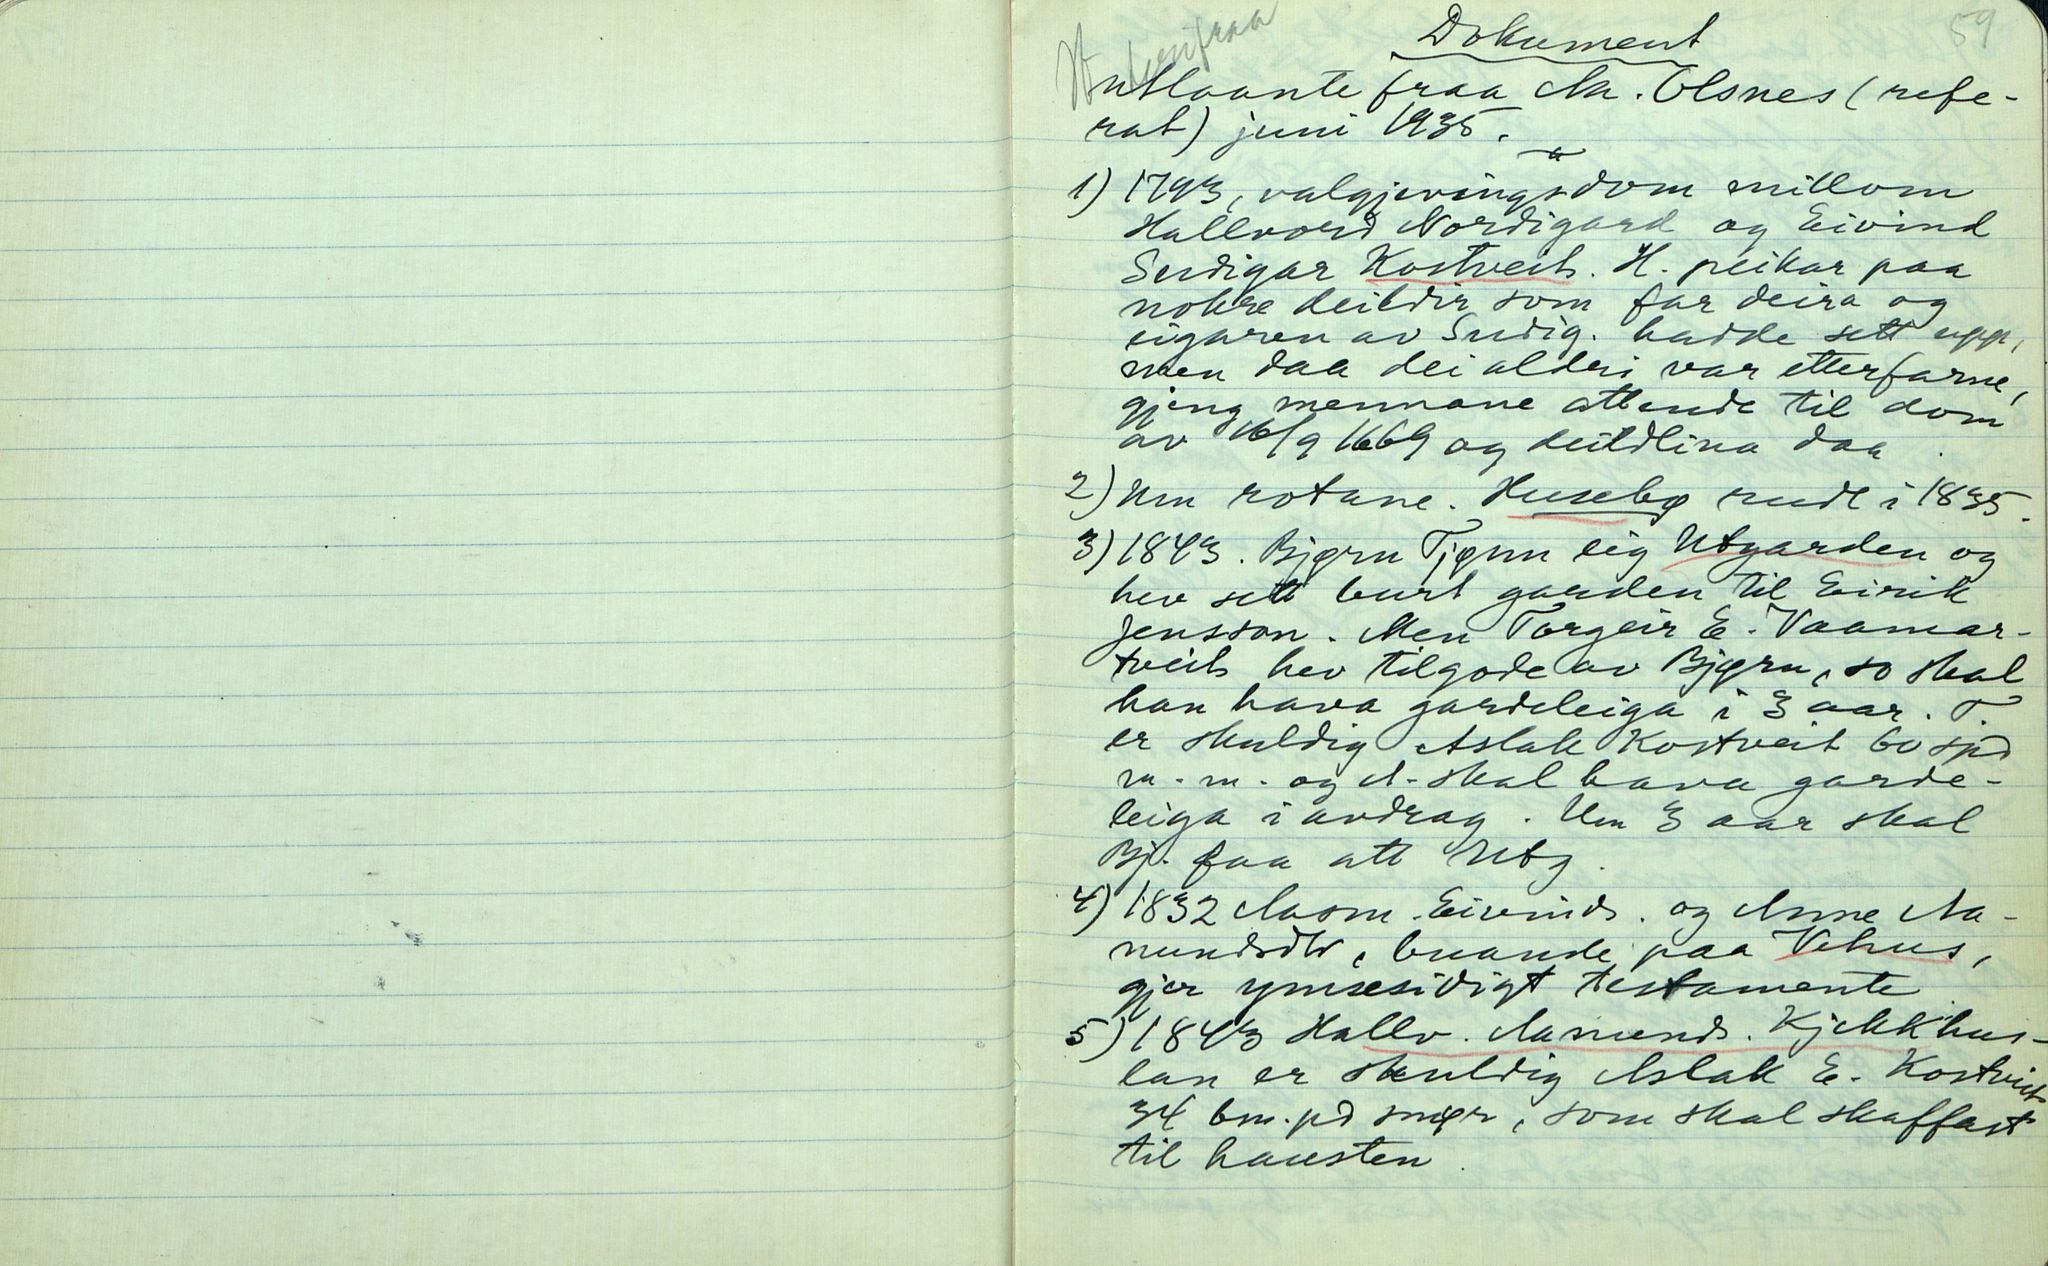 59
Dokument
utlaante fraa Aa. Olsnes (refe-
rat) juni 1935.
1) 1793, valgjevingsdom millom
Hallvord Nordigard og Eivind
Sudigar Kostveit. H. peikar paa
nokre deildir som far deira og
eigaren av Sudig. hadde sett upp,
men daa dei aldri var etterfarne,
gjeng mennane attende til dom
av 16/9 1669 og deildlina daa.
2) Um rotane. Husebø rudt i 1835.
3) 1843. Bjørn Tjønn eig Utgarden og
hev sett burt garden til Eirik
Jensson. Men Torgeir E. Vaamar-
tveit hev tilgode av Bjørn, so skal
han hava gardleiga i 3 aar. T.
er skuldig Aslak Kostveit 60 spd
m.m. og A. skal hava garde-
leiga i avdrag. Um 3 aar skal
Bj. faa att Utg.
4) 1832 Aasm. Eivinds. og Anne Aa-
nundsdtr, buande paa Vehus,
gjer ymsesidigt testamente
5) 1843 Hallv. Aamunds. Kjekkhus-
lan er skuldig Aslak E. Kostveit
34 bm.pd smør, som skal skaffast
til hausten.